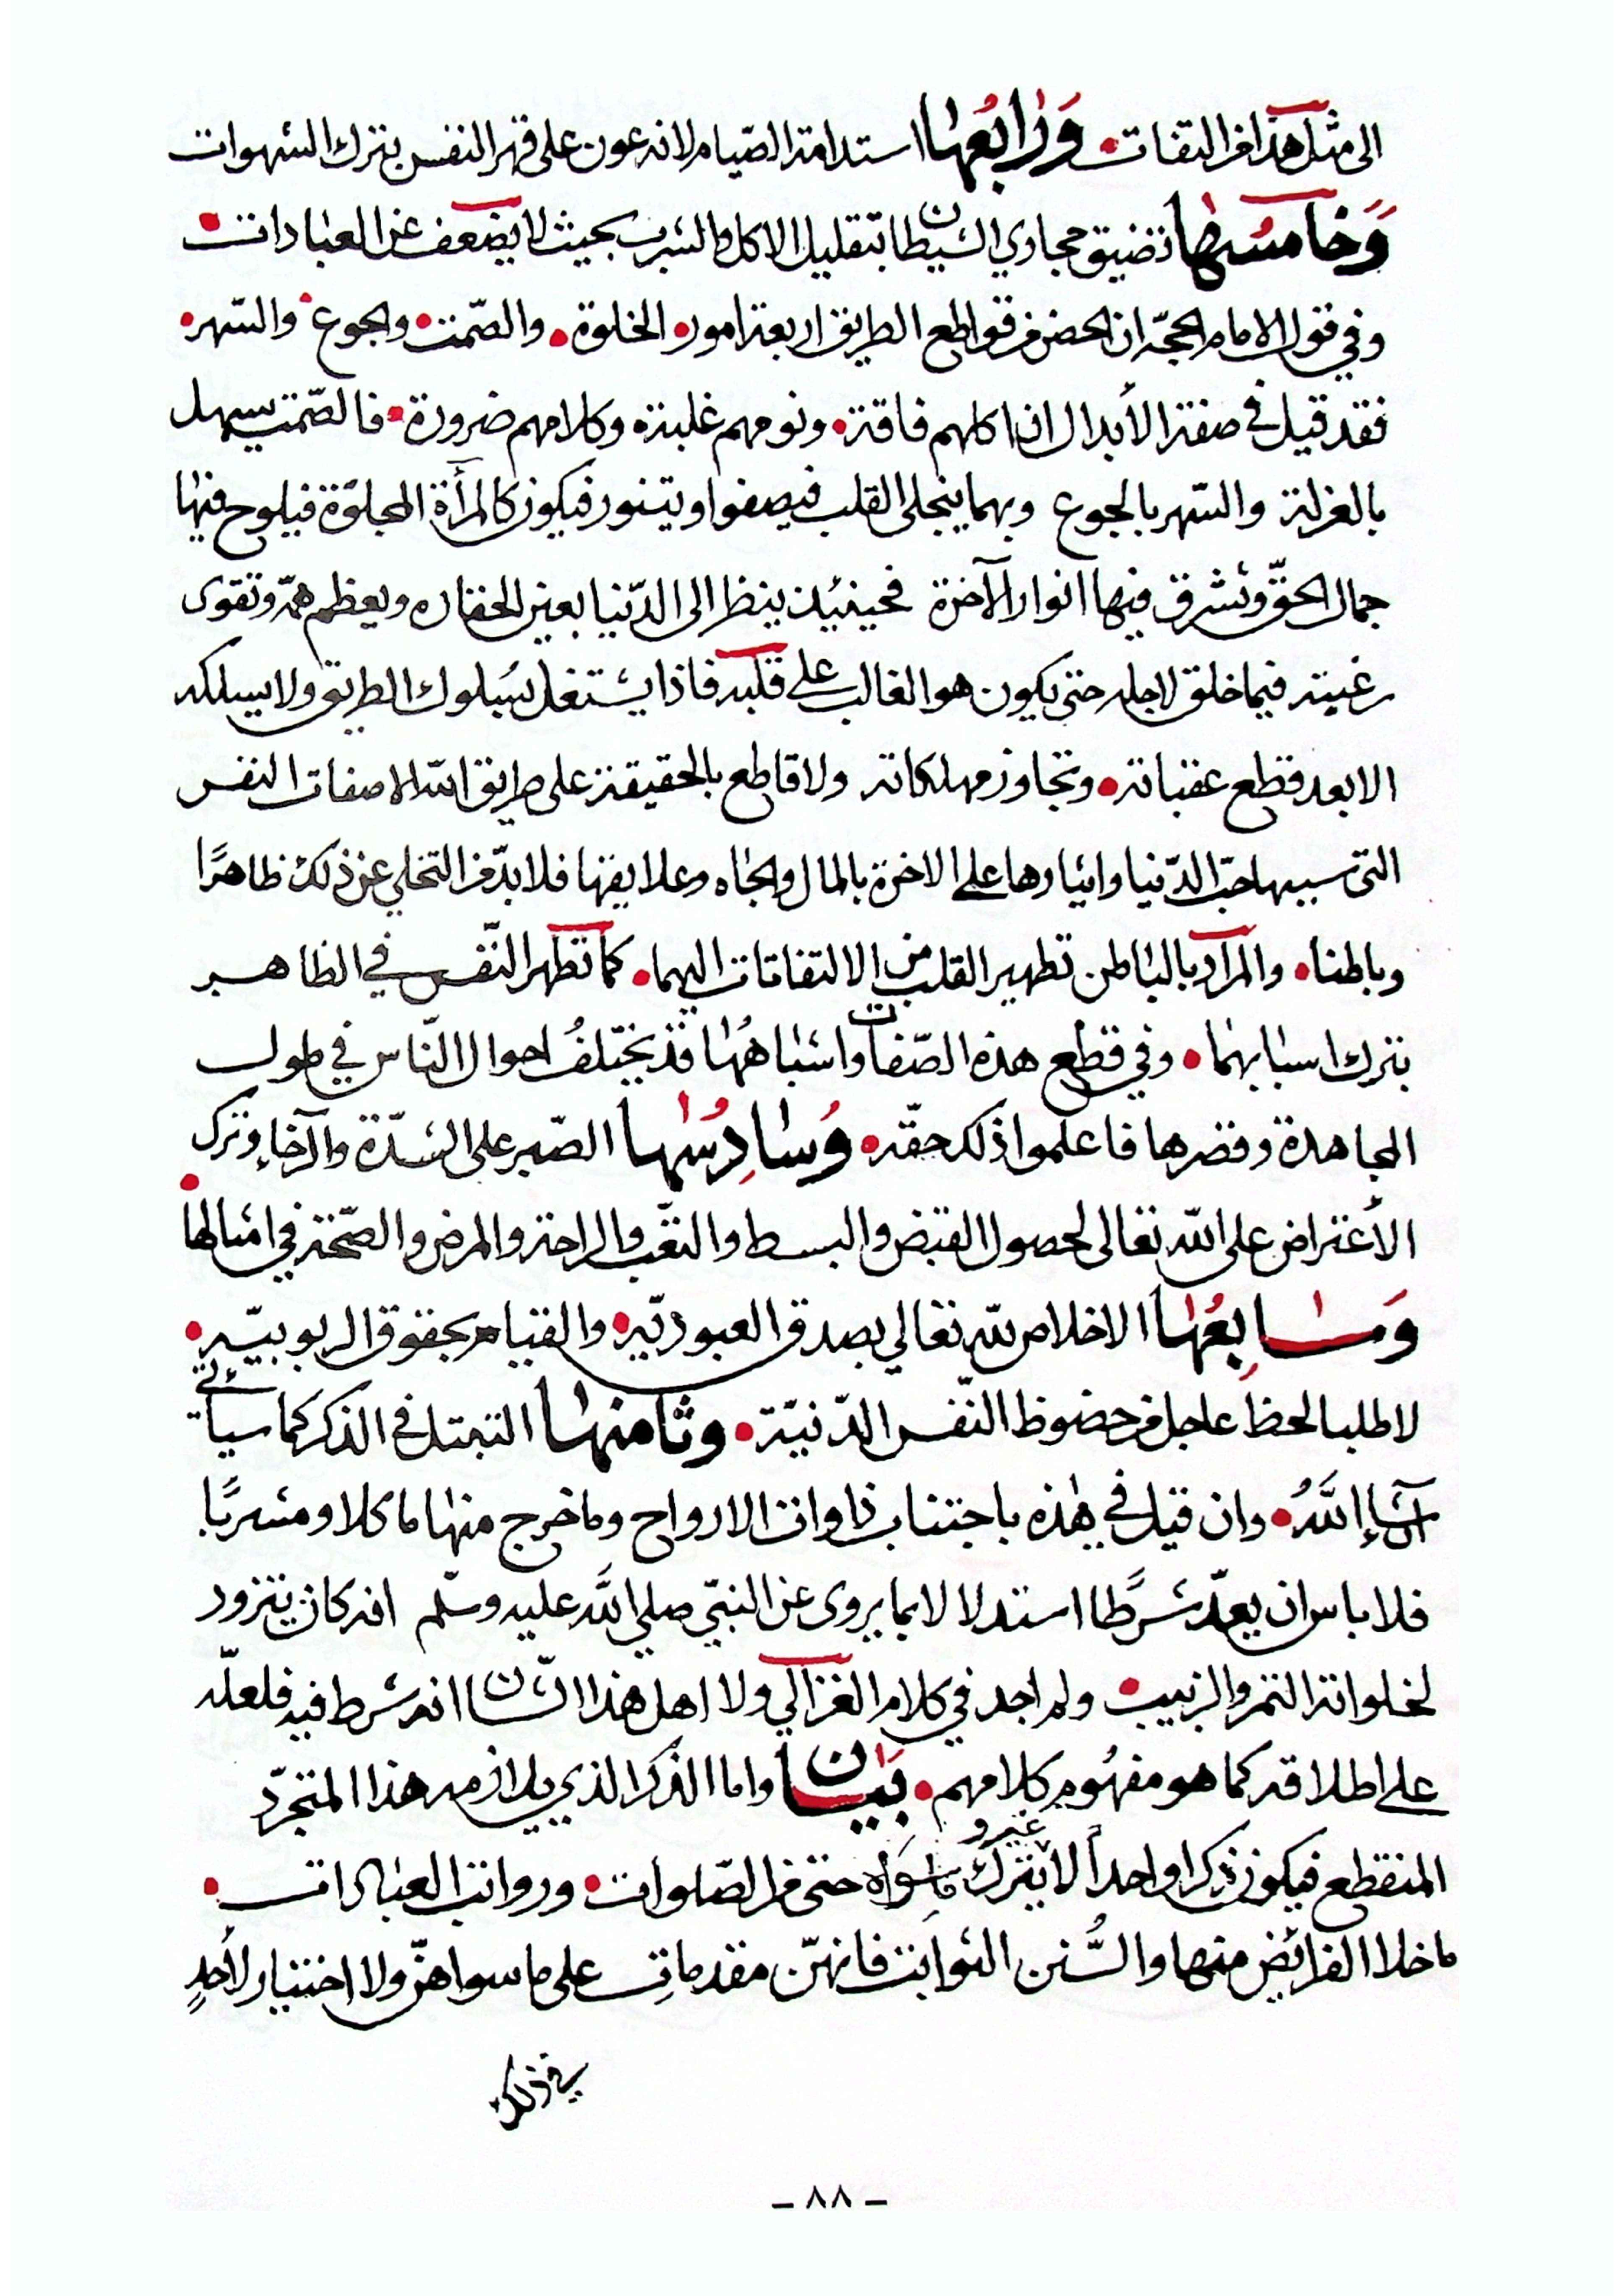 الى مثل هذا من التفات • وَرَابعُها استدامة الصّيام لانه عون على قهر النفس بترك الشهوات
وَخَامسُها تضييق مجاري الشيطان بتقليل الاكل والشرب بحيث لا يضعف عن العبادات •
وفي قول الامام الحجّة ان الحصن من قواطع الطريق اربعة امور • الخلوة • والصّمت • والجوع • والسّهر •
فقد قيل في صفة الأبدال ان اكلهم فاقة • ونومهم غلبة • وكلامهم ضرورة • فالصّمت يسهل
بالعزلة والسّهر بالجوع وبهما ينجلى القلب فيصفوا ويتنور فيكون كالمرأة المجلوّة فيلوح فيها
جمال الحقّ وتشرق فيها انوار الآخرة فحينئيذ ينظر الى الدّنيا بعين الحقاره ويعظم همّه وتقوى
رغبته فيما خلق لاجله حتى يكون هو الغالب على قلبه فاذا يشتغل بسُلوك الطريق ولا يسلكه
الا بعد قطع عقباته • وتجاوز مهلكاته ولا قاطع بالحقيقة على طريق الله الا صفات النفس
التى سببها حبّ الدّنيا وايثارها على الاخرة بالمال والجاه وعلايقها فلا بدّ من التخلي عن ذلك ظاهرًا
وباطنا • والمراد بالباطن تطهير القلب من الالتفاتات اليهما • كما تطهر النّفس في الظاهر
بترك اسبابهما • وفي قطع هذه الصّفات واشباهُها قد يختلفُ احوال النّاس في طول
المجاهدة وقصرها فاعلموا ذلك حقّه • وَسَادِسُها الصّبر على الشدّة والرّخاءِ وترك
الأعتراض على الله تعالى لحصول القبض والبسط والتعّب والراحة والمرض والصّحّة في امثالها •
وَسَابِعُها الاخلاص للّه تعالي بصدق العبوديّه • والقيام بحقوق الربوبيّه •
لا طلبا لحظ عاجل من حضوظ النّفس الدّنيّة • وثامنها التبتل في الذكر كما سيأتي
انشآءِ اللَّهُ • وان قيل في هٰذه باجتناب ذاوات الارواح وما خرج منها ماكلا ومشربًا
فلا باس ان يعدّ شرطًا استدلالا بما يروى عن النبيّ صلي اللَّه عليه وسلّم انه كان يتزود
لخلواته التمر والزبيب • ولم اجد في كلام الغزالي ولا اهل هذا الشّان انه شرط فيه فلعلّه
على اطلاقه كما هو مفهُوم كلامهم • بَيَان واما الذكر الذي يلازمه هذا المتجرّد
المنقطع فيكون ذكرا واحداً لا غير و يترك ما سَواه حتى من الصّلوات • ورواتب العبادات •
ما خلا الفرائض منها والسُّنن الثوابت فانهنّ مقدمات على ما سواهنّ ولا اختيار لأحدٍ
في ذلك
– ٨٨ –